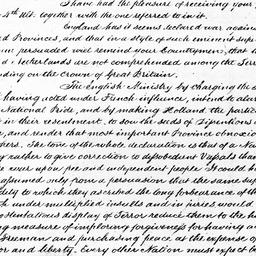 I have had the pleasure of receiving your
4th Ult. together with the one referred to in it.
England has it seems declared war against
d Provinces, and that in a style of such eminent sup
m persuaded will remind your Countrymen, that the
d Netherlands are not comprehended among the Terri
nding on the Crown of Great Britain.
The English Ministry by charging the
having acted under French influence, intend to alarm
National Pride, and by making Holland the partic
t in their resentment, to sow the seeds of Dissentions
, and render that most important Province obnoxio
hers. The tone of the whole declaration is that of a Na
y rather to give correction to disobedient Vassals than
e war upon free and independent people. It could ha
assumed only from a persuasion that the same sup
dity to which they ascribed the long forbearance of the
ch under multiplied insults and injuries would
ostentatious display of Terror reduce them to the h
ng measure of imploring forgiveness for having a
Freemen and purchasing peace at the expense of
or and liberty. Every other Nation must expect to